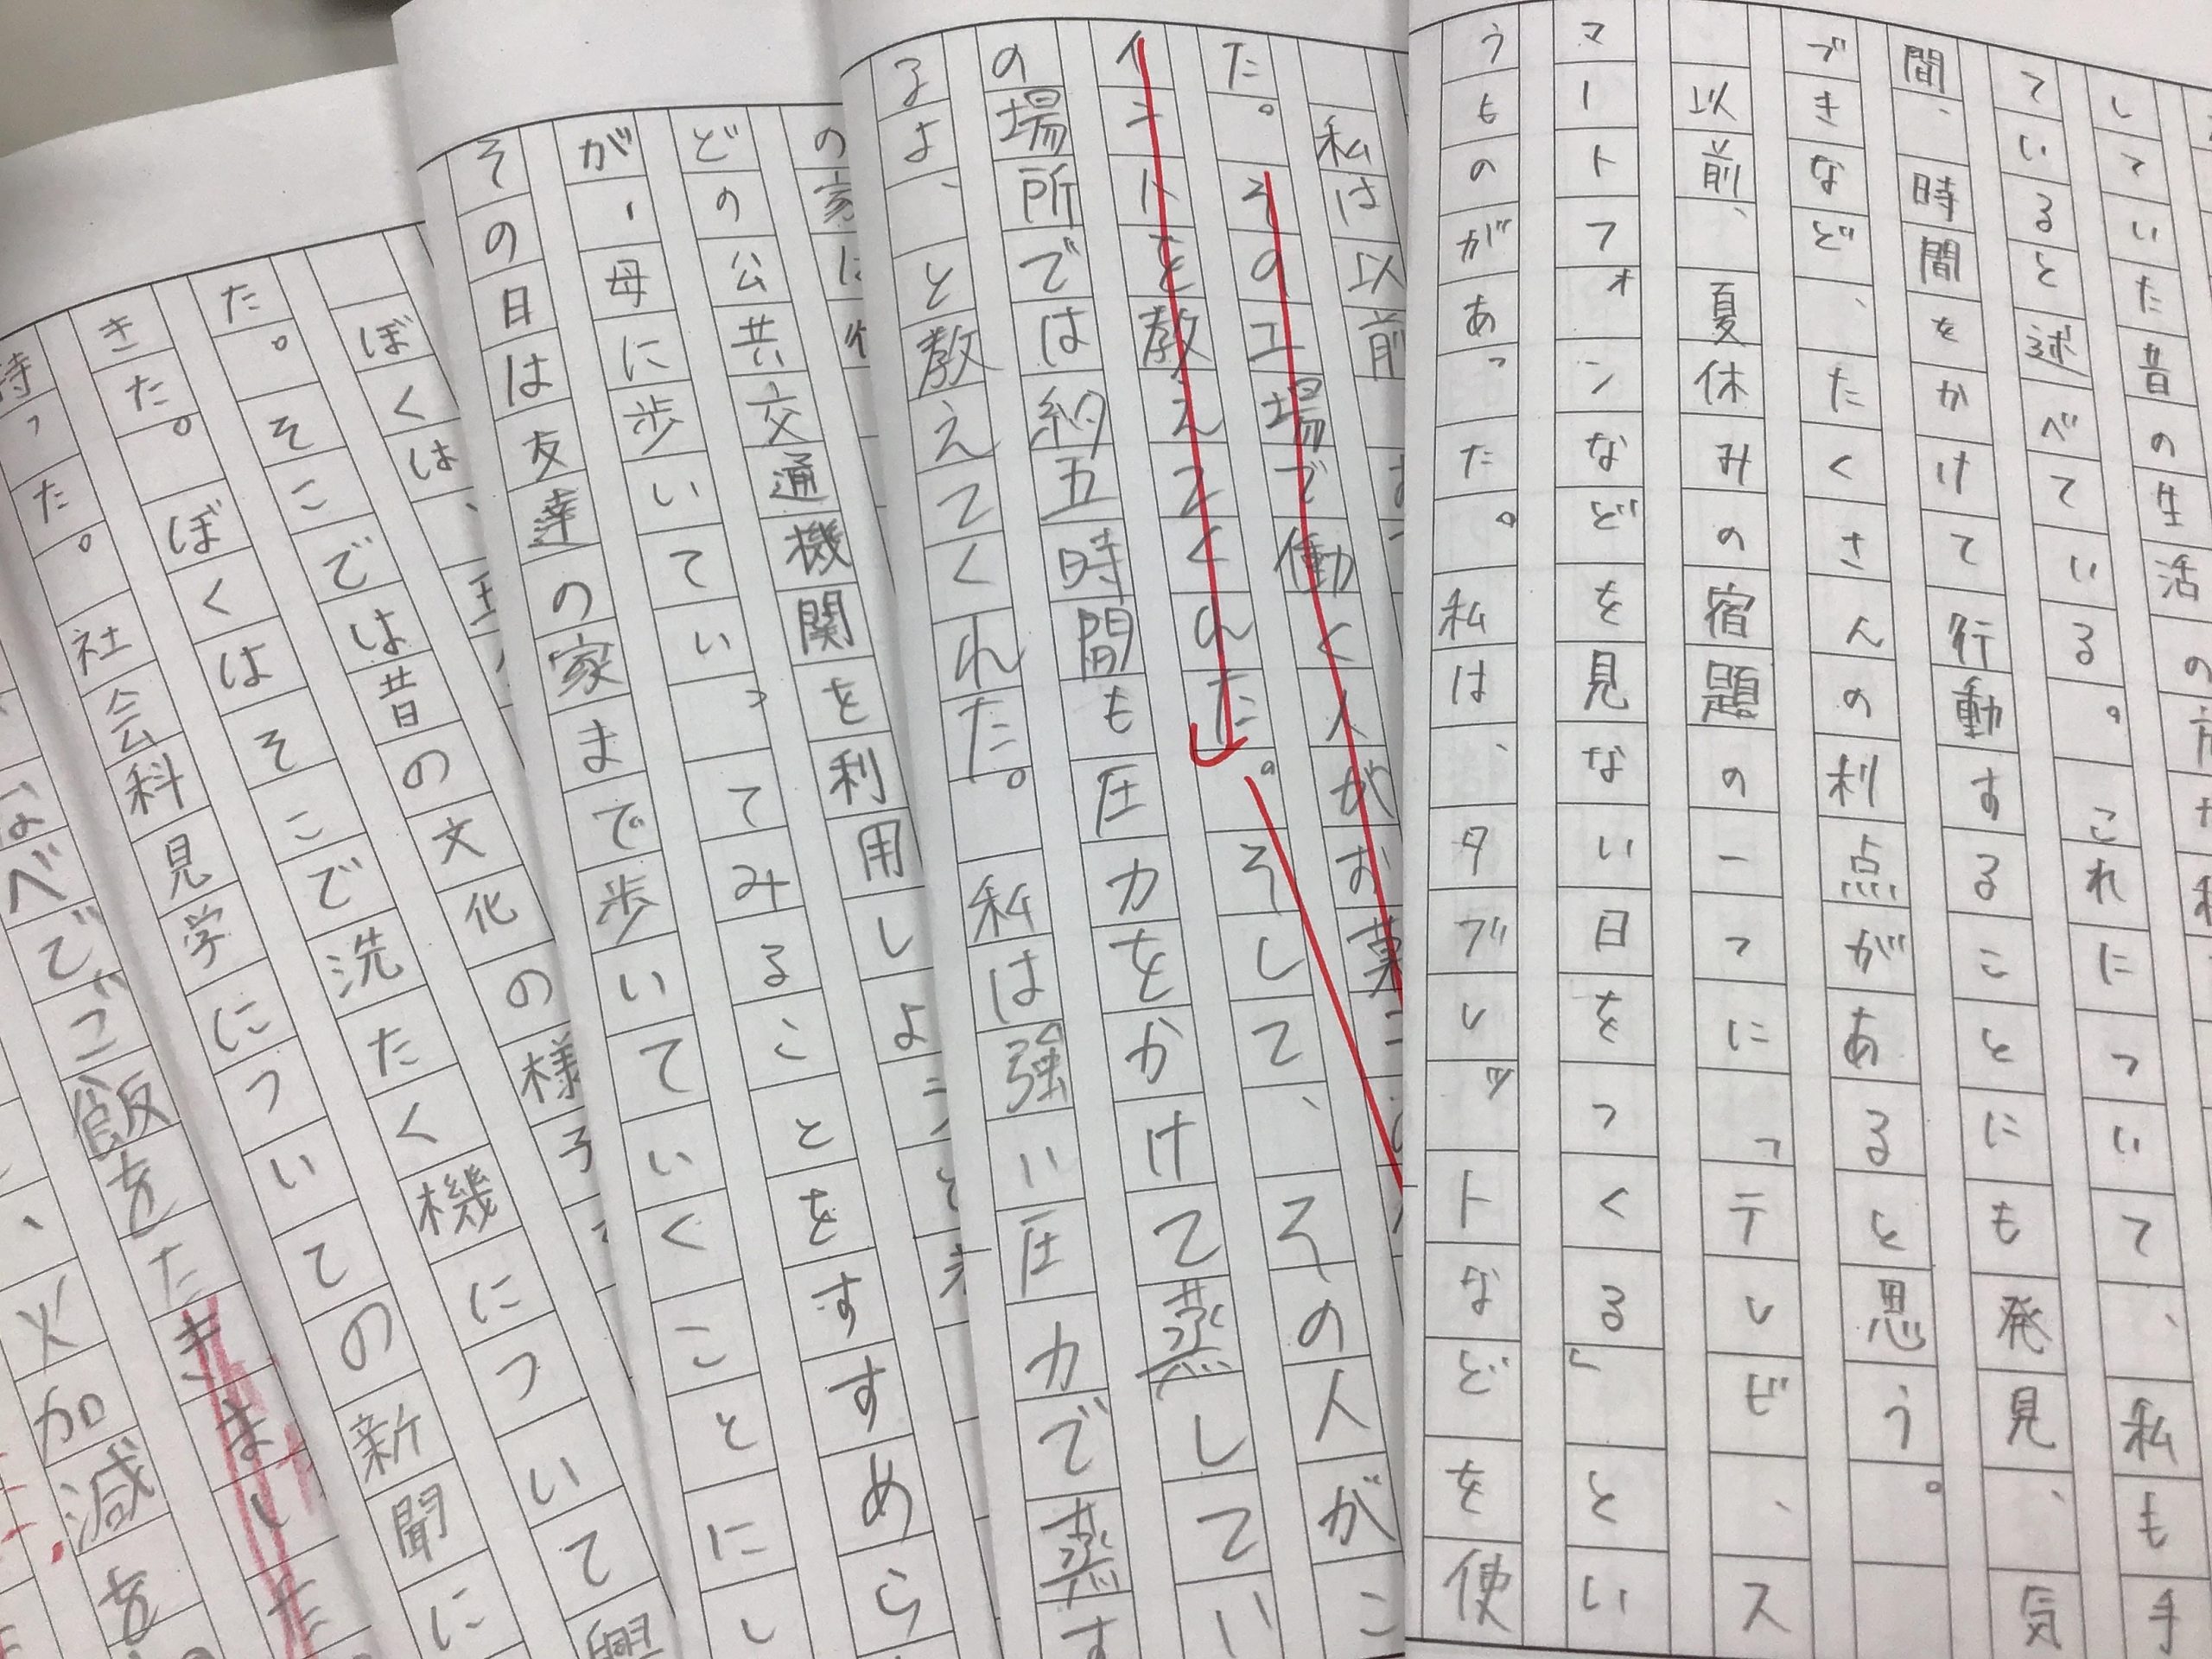 していた昔の生活の
ていると述べている。これについて、私も手
間、時間をかけて行動することにも発見、気
づきなど、たくさんの利点があると思う。
以前、夏休みの宿題の一つに「テレビ、ス
マートフォンなどを見ない日をつくる」とい
うものがあった。私は、タブレットなどを使
私は以前
た。その工場で働く人がお菓
イントを教えてくれた。そして、その人がこ
の場所では約五時間も圧力をかけて蒸してい
るよ、と教えてくれた。私は強い圧力で蒸す
の家は
どの公共交通機関を利用しよう
が、母に歩いていってみることをすすめら
その日は友達の家まで歩いていくことにし
ぼくは、
た。そこでは昔の文化の様子
きた。ぼくはそこで洗たく機について興
持った。社会科見学についての新聞に
なべでご飯をたきました
火加減を